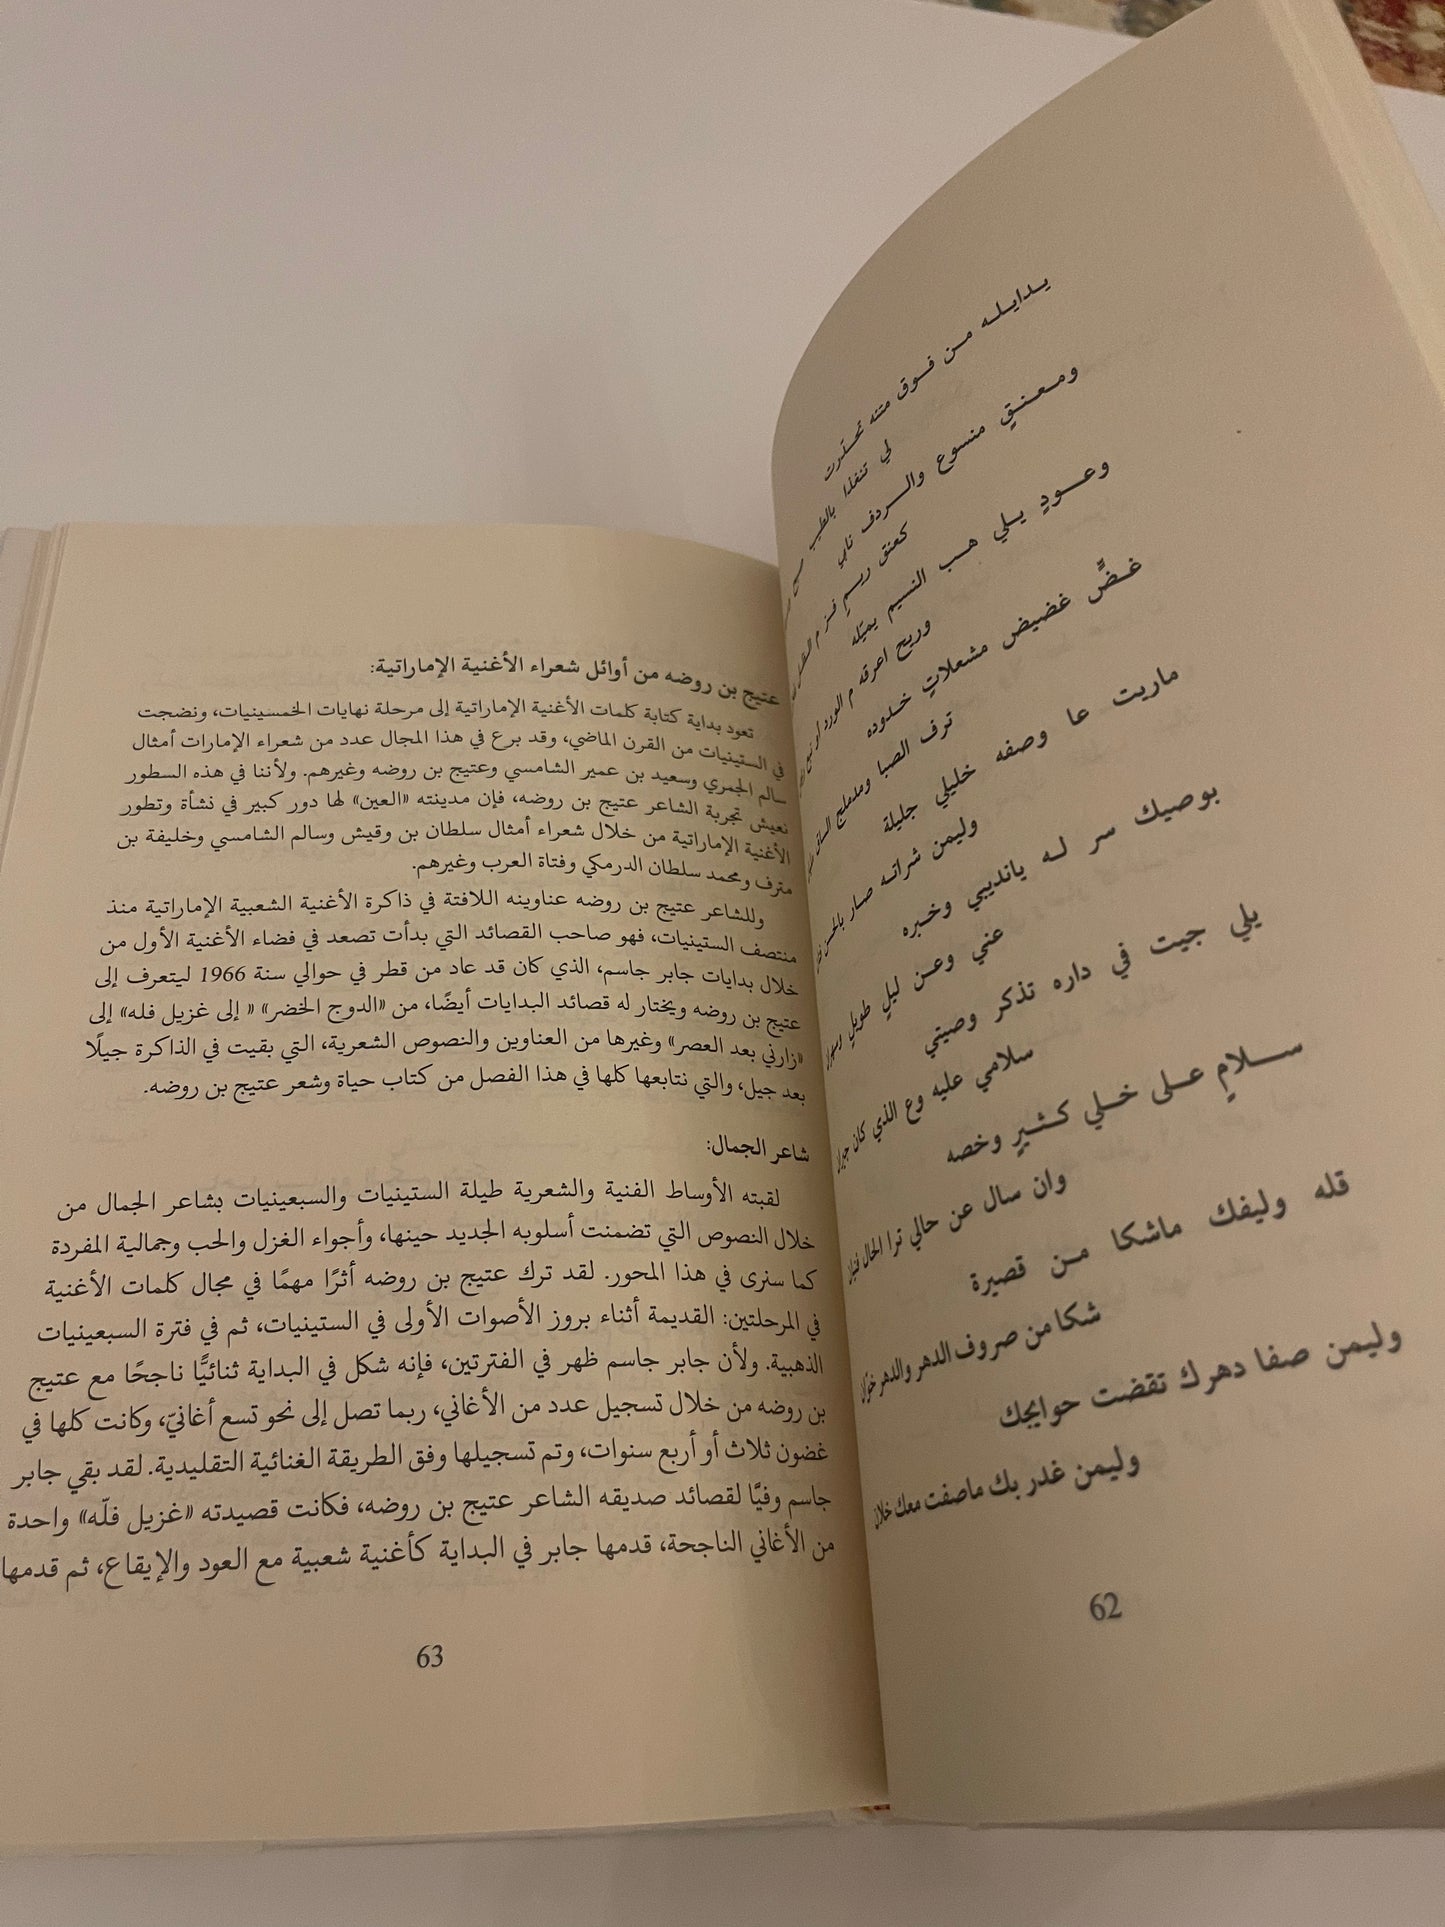 يدايله من فوق متنه تحدّرت
لي تنفذا بالطيب
ومعنقٍ منسوع والردف نابي
كعنق ريمٍ فز م
وعودٍ يلي هب النسيم يميّله
وريح اعرقه م الورد او
غضٍّ غضيض مشعلاتٍ خدوده
ترف الصبا ومدملج الساق
ماريت عا وصفه خليلي جليلة
وليمن شراته صار بالحسن
بوصيك سر له يانديبي وخبره
عني وعن ليلٍ طويلٍ
يلي جيت في داره تذكر وصيتي
سلامي عليه وع الذي كان
سلامٍ على خلي كثيرٍ وخصه
وان سال عن حالي ترا الحال
قله وليفك ماشكا من قصيرة
شكا من صروف الدهر والدهر خوّان
وليمن صفا دهرك تقضت حوايجك
وليمن غدر بك ماصفت معك خلان
62
عتيج بن روضه من أوائل شعراء الأغنية الإماراتية:
تعود بداية كتابة كلمات الأغنية الإماراتية إلى مرحلة نهايات الخمسينيات، ونضجت
في الستينيات من القرن الماضي، وقد برع في هذا المجال عدد من شعراء الإمارات أمثال
سالم الجمري وسعيد بن عمير الشامسي وعتيج بن روضه وغيرهم. ولأننا في هذه السطور
نعيش تجربة الشاعر عتيج بن روضه، فإن مدينته «العين» لها دور كبير في نشأة وتطور
الأغنية الإماراتية من خلال شعراء أمثال سلطان بن وقيش وسالم الشامسي وخليفة بن
مترف ومحمد سلطان الدرمكي وفتاة العرب وغيرهم.
وللشاعر عتيج بن روضه عناوينه اللافتة في ذاكرة الأغنية الشعبية الإماراتية منذ
منتصف الستينيات، فهو صاحب القصائد التي بدأت تصعد في فضاء الأغنية الأول من
خلال بدايات جابر جاسم، الذي كان قد عاد من قطر في حوالي سنة 1966 ليتعرف إلى
عتيج بن روضه ويختار له قصائد البدايات أيضًا، من «الدوج الخضر» « إلى غزيل فله» إلى
«زارني بعد العصر» وغيرها من العناوين والنصوص الشعرية، التي بقيت في الذاكرة جيلًا
بعد جيل، والتي نتابعها كلها في هذا الفصل من كتاب حياة وشعر عتيج بن روضه.
شاعر الجمال:
لقبته الأوساط الفنية والشعرية طيلة الستينيات والسبعينيات بشاعر الجمال من
خلال النصوص التي تضمنت أسلوبه الجديد حينها، وأجواء الغزل والحب وجمالية المفردة
كما سنرى في هذا المحور. لقد ترك عتيج بن روضه أثرًا مهمًا في مجال كلمات الأغنية
في المرحلتين: القديمة أثناء بروز الأصوات الأولى في الستينيات، ثم في فترة السبعينيات
الذهبية. ولأن جابر جاسم ظهر في الفترتين، فإنه شكل في البداية ثنائيًّا ناجحًا مع عتيج
بن روضه من خلال تسجيل عدد من الأغاني، ربما تصل إلى نحو تسع أغانيّ، وكانت كلها في
غضون ثلاث أو أربع سنوات، وتم تسجيلها وفق الطريقة الغنائية التقليدية. لقد بقي جابر
جاسم وفيًا لقصائد صديقه الشاعر عتيج بن روضه، فكانت قصيدته «غزيل فلّه» واحدة
من الأغاني الناجحة، قدمها جابر في البداية كأغنية شعبية مع العود والإيقاع، ثم قدمها
63